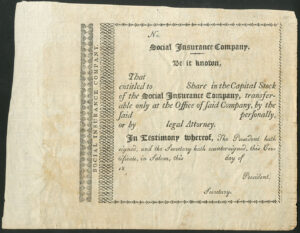 No.
Social Insurance Company.
Be it known,
That
entitled to Share in the Capital Stock
of the Social Insurance Company, transfer-
able only at the Office of said Company, by the
said personally,
or by legal Attorney.
In Testimony whereof, The President hath
signed, and the Secretary hath countersigned, this Cer-
tificate, in Salem, this day of
18
President.
Secretary.
SOCIAL INSURANCE COMPANY.